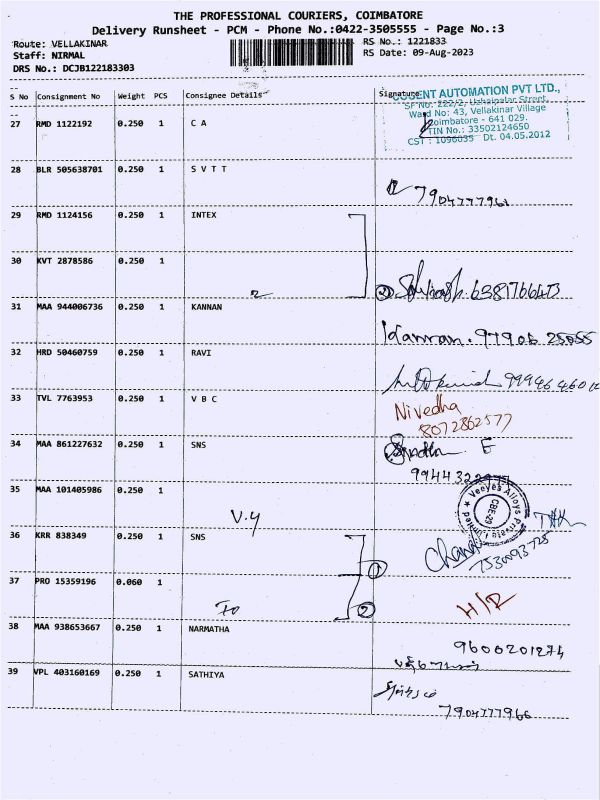 THE PROFESSIONAL COURIERS, COIMBATORE
Delivery Runsheet - PCM - Phone No.:0422-3505555 - Page No.:3
Route: VELLAKINAR RS No.: 1221833
Staff: NIRMAL RS Date: 09-Aug-2023
DRS No.: DCJB122183303
S No Consignment No Weight PCS Consignee Details Signature
COGENT AUTOMATION PVT LTD.,
SF No: 222/2,
Ward No: 43, Vellakinar Village
Coimbatore - 641 029.
TIN No.: 33502124650
CST : 1096035 Dt. 04.05.2012
27 RMD 1122192 0.250 1 C A
28 BLR 505638701 0.250 1 S V T T
7904777961
29 RMD 1124156 0.250 1 INTEX
30 KVT 2878586 0.250 1
2
31 MAA 944006736 0.250 1 KANNAN
Kannan. 97906 25055
32 HRD 50460759 0.250 1 RAVI
33 TVL 7763953 0.250 1 V B C
Nivedha
8072862577
34 MAA 861227632 0.250 1 SNS
Sindhu E
35 MAA 101405986 0.250 1
V.Y
Veeyes Alloys Private Limited
CBE-29
36 KRR 838349 0.250 1 SNS
1
37 PRO 15359196 0.060 1
2
H/R
38 MAA 938653667 0.250 1 NARMATHA
9600201274
39 VPL 403160169 0.250 1 SATHIYA
7904777966